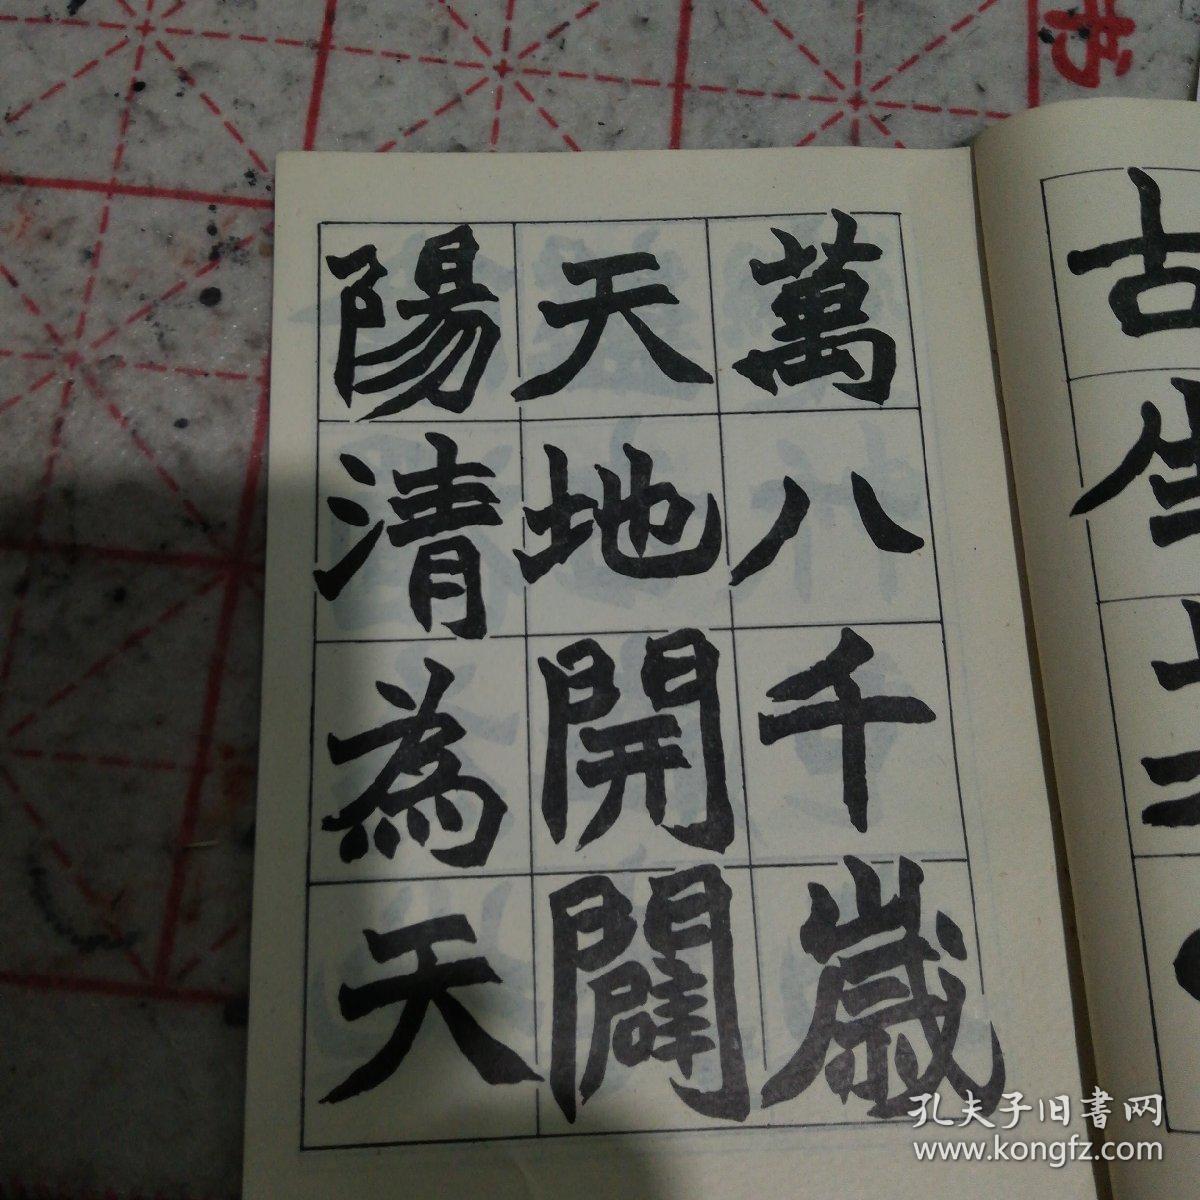 萬八千歲
天地開闢
陽清為天
古
书
孔夫子旧書网
www.kongfz.com